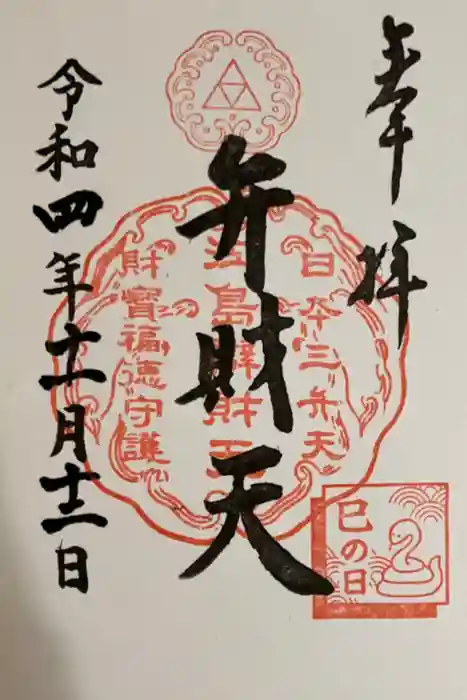 奉拝
日本三弁天
江島辯財天
弁財天
財寶福徳守護
令和四年十一月十二日
巳の日